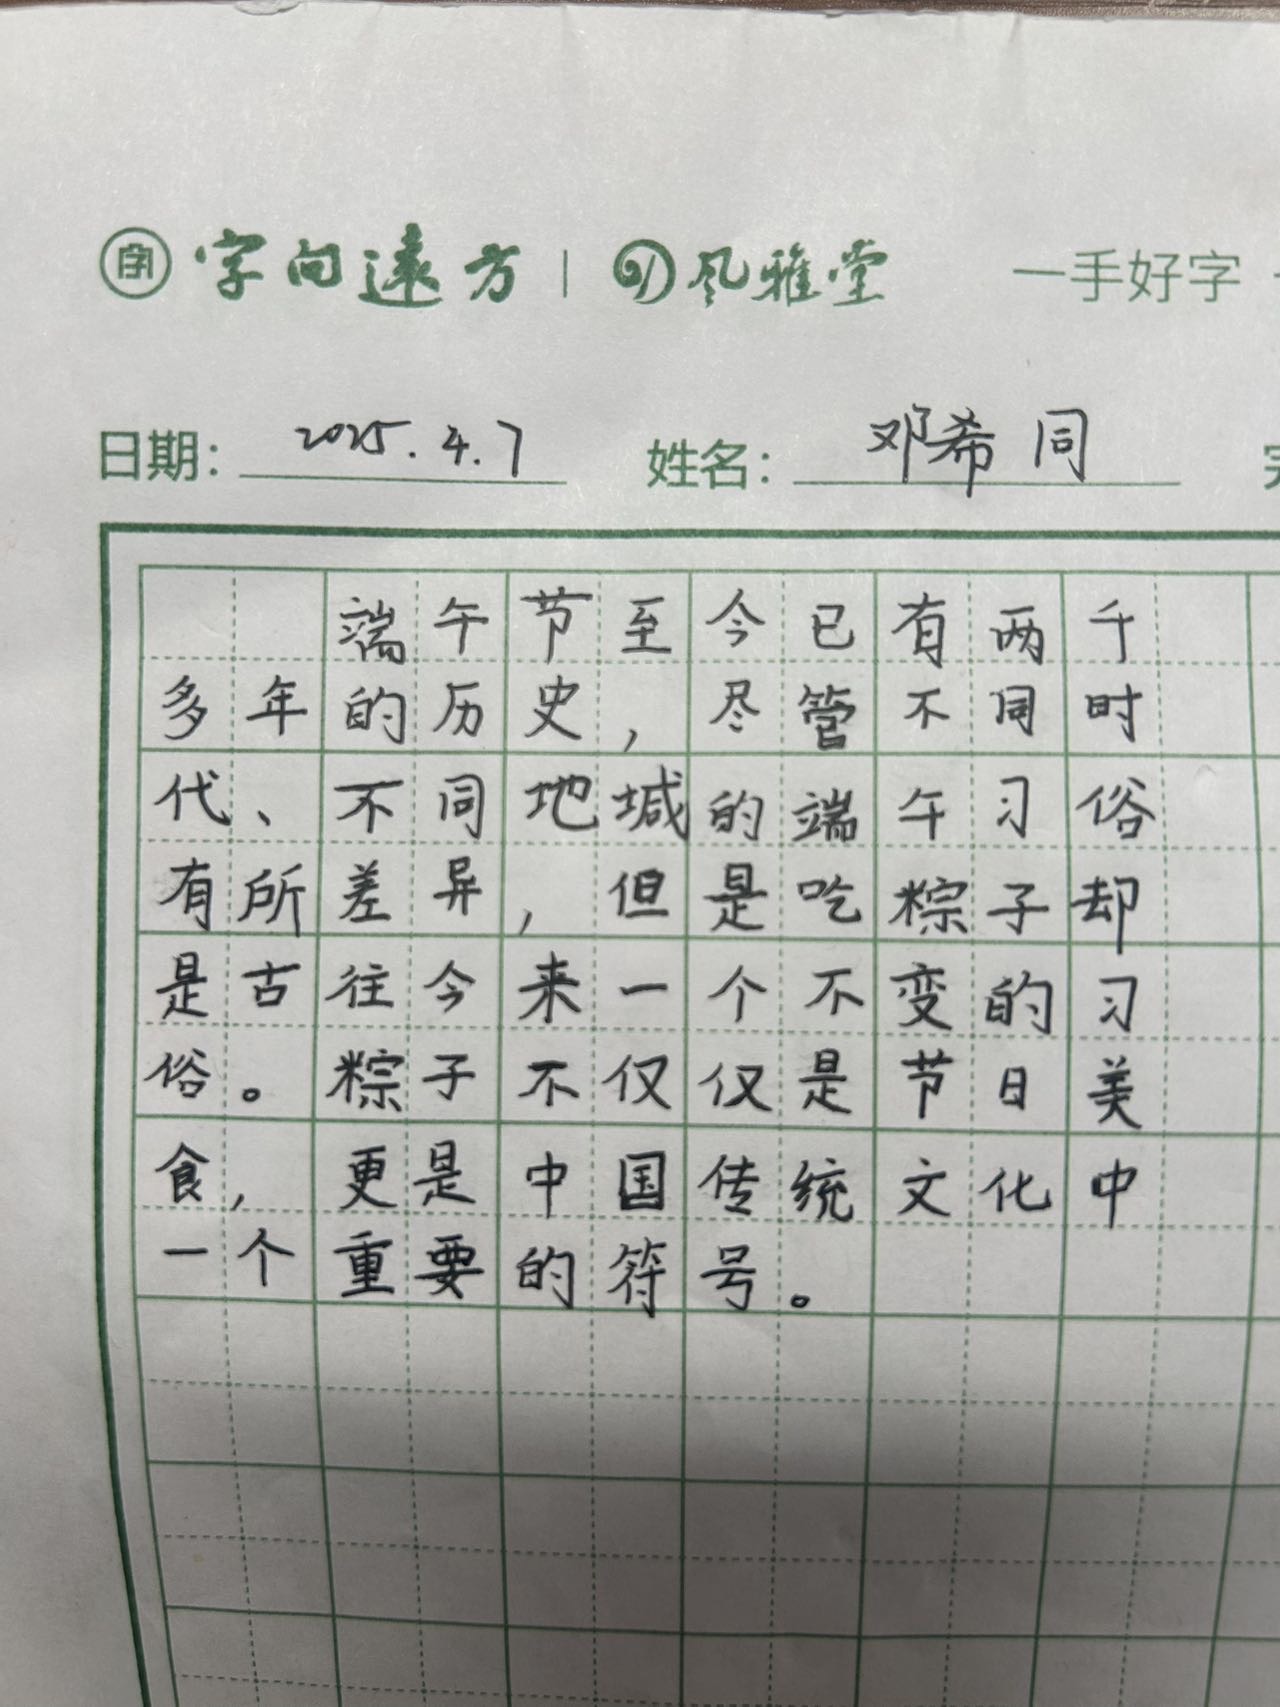 字 字向遠方 | 风雅堂 一手好字
日期: 2025.4.7 姓名: 邓希同
端午节至今已有两千
多年的历史，尽管不同时
代、不同地域的端午习俗
有所差异，但是吃粽子却
是古往今来一个不变的习
俗。粽子不仅仅是节日美
食，更是中国传统文化中
一个重要的符号。